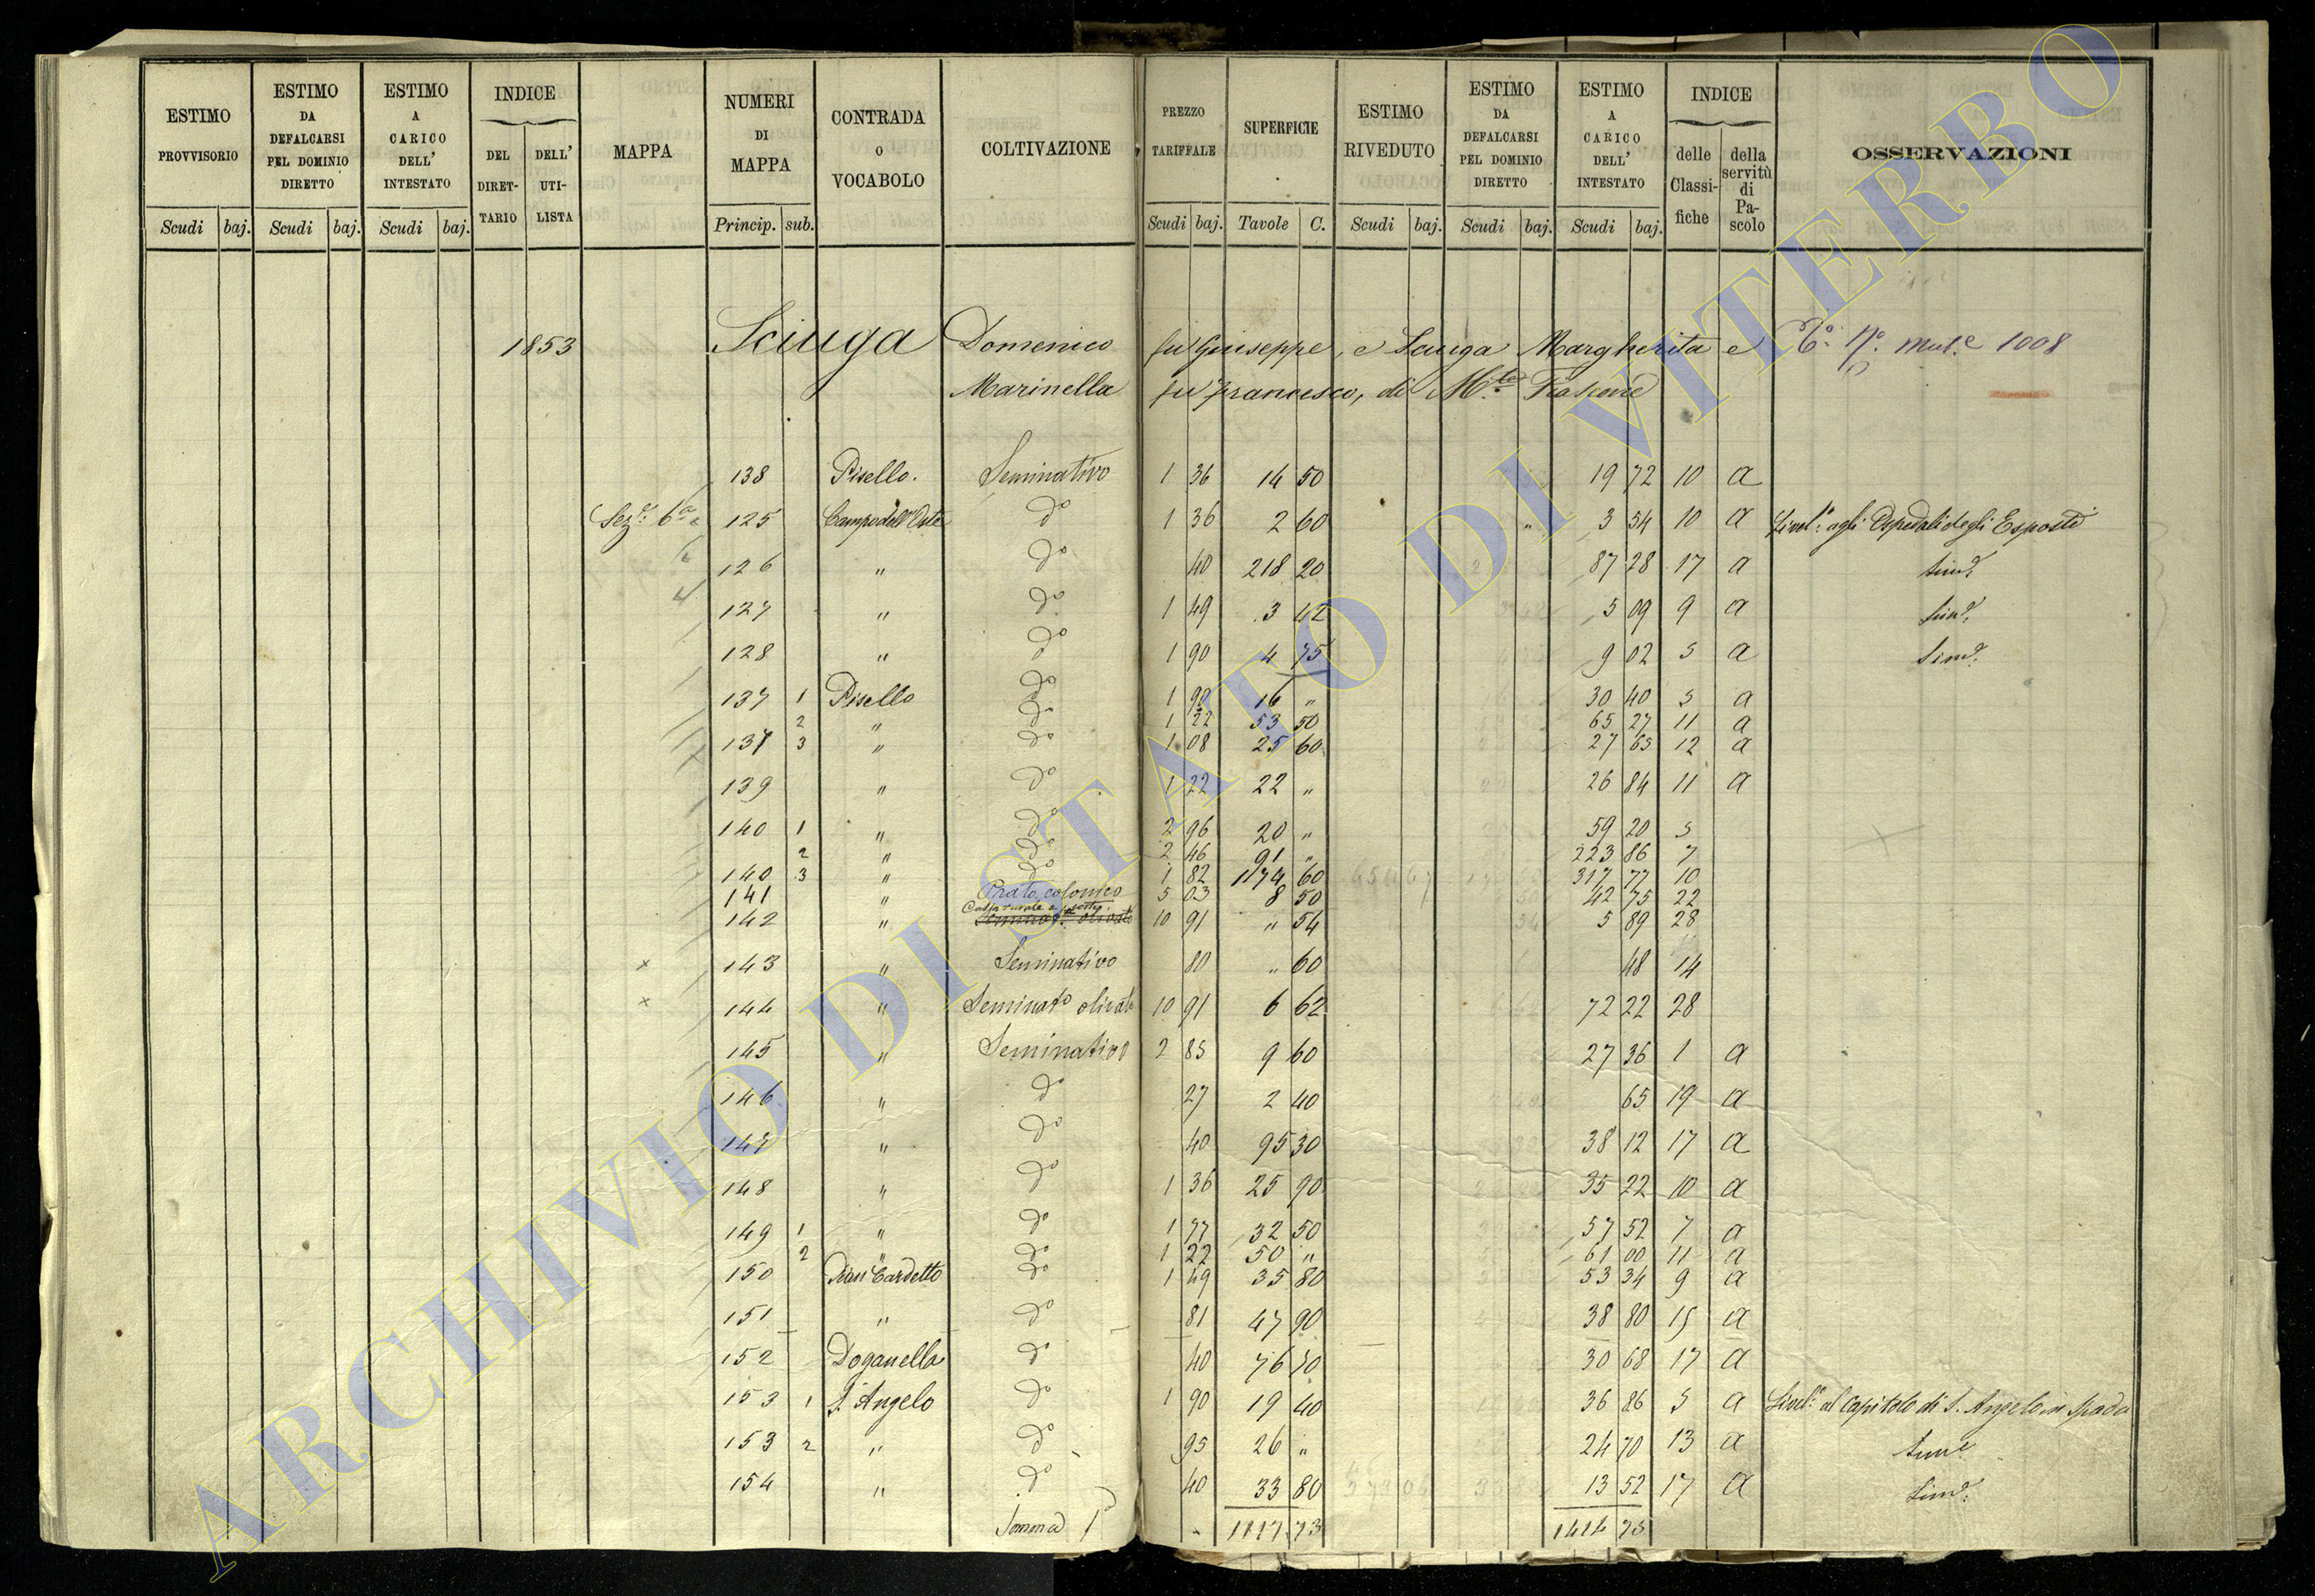 ESTIMO PROVVISORIO
Scudi baj.
ESTIMO DA DEFALCARSI PEL DOMINIO DIRETTO
Scudi baj.
ESTIMO A CARICO DELL' INTESTATO
Scudi baj.
INDICE
DEL DIRET-TARIO
DELL' UTI-LISTA
MAPPA
NUMERI DI MAPPA
Princip. sub.
CONTRADA O VOCABOLO
COLTIVAZIONE
PREZZO TARIFFALE
Scudi baj.
SUPERFICIE
Tavole C.
ESTIMO RIVEDUTO
Scudi baj.
ESTIMO DA DEFALCARSI PEL DOMINIO DIRETTO
Scudi baj.
ESTIMO A CARICO DELL' INTESTATO
Scudi baj.
INDICE
delle Classi-fiche
della servitù di Pa-scolo
OSSERVAZIONI
1853 Sciuga Domenico fu Giuseppe, e Sciuga Margherita e mut.e 1008
Marinella fu Francesco, di M.te Fiascone
138 Pisello. Seminativo 1 36 14 50 19 72 10 a
Sez.e 6a 125 Campo dell'Oste do 1 36 2 60 " 3 54 10 a Livel.o agli Ospedali degli Esposti
126 " do 40 218 20 87 28 17 a Simd.
127 " do 1 49 3 42 5 09 9 a Simd.
128 " do 1 90 4 75 9 02 5 a Simd.
137 1 Pisello do 1 90 16 " 30 40 5 a
2 " do 1 22 53 50 65 27 11 a
137 3 " do 1 08 25 60 27 65 12 a
139 " do 1 22 22 " 26 84 11 a
140 1 " do 2 96 20 " 59 20 5
2 " do 2 46 91 " 223 86 7
140 3 " do 1 82 174 60 317 77 10
141 " Prato colonico 5 03 8 50 42 75 22
142 " Casa rurale e corte 10 91 " 54 5 89 28
Seminat.o olivato
x 143 " Seminativo 80 " 60 48 14
x 144 " Seminato olivato 10 91 6 62 72 22 28
145 " Seminativo 2 85 9 60 27 36 1 a
146 " do 27 2 40 65 19 a
147 " do 40 95 30 38 12 17 a
148 " do 1 36 25 90 35 22 10 a
149 1 " do 1 77 32 50 57 52 7 a
2 " do 1 22 50 " 61 00 11 a
150 Pian Cardetto do 1 49 35 80 53 34 9 a
151 " do 81 47 90 38 80 15 a
152 Doganella do 40 76 70 30 68 17 a
153 1 S. Angelo do 1 90 19 40 36 86 5 a Livel.o al Capitolo di S. Angelo in Spada
153 2 " do 95 26 " 24 70 13 a Simd.
154 " do 40 33 80 13 52 17 a Simd.
Somma 1117 73 1414 75
ARCHIVIO DI STATO DI VITERBO